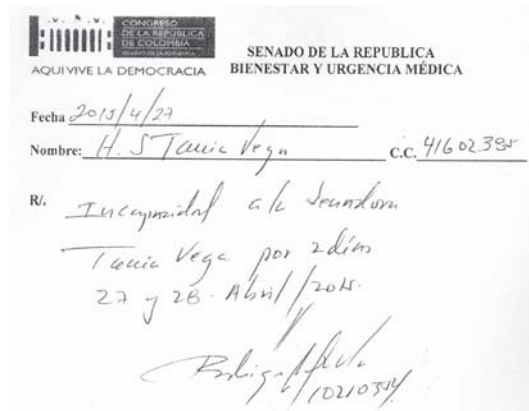 CONGRESO
DE LA REPÚBLICA
DE COLOMBIA
AQUÍ VIVE LA DEMOCRACIA
SENADO DE LA REPUBLICA
BIENESTAR Y URGENCIA MÉDICA
Fecha 2015/4/27
Nombre: H. S Tania Vega C.C. 41602.395
R/. Incapacidad a la Senadora
Tania Vega por 2 días
27 y 28 Abril/2015.